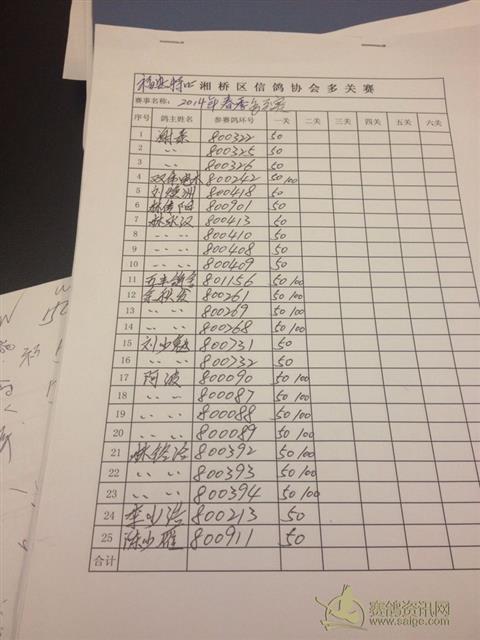 湘桥区信鸽协会多关赛
赛事名称: 2014年春季多关赛
序号 鸽主姓名 参赛鸽环号 一关 二关 三关 四关 五关 六关
1 谢泰 800322 50
2 〃 〃 800325 50
3 〃 〃 800326 50
4 800242 50 100
5 800418 50
6 800901 50
7 林永汉 800413 50
8 〃 〃 800410 50
9 〃 〃 800408 50
10 〃 〃 800409 50
11 801156 50 100
12 800261 50 100
13 〃 〃 800269 50 100
14 〃 〃 800268 50 100
15 800731 50
16 〃 〃 800732 50
17 阿波 800090 50 100
18 〃 〃 800087 50 100
19 〃 〃 800088 50 100
20 〃 〃 800089 50 100
21 800392 50 100
22 〃 〃 800393 50 100
23 〃 〃 800394 50 100
24 800213 50
25 陈少雁 800911 50
合计
赛鸽资讯网
www.saige.com